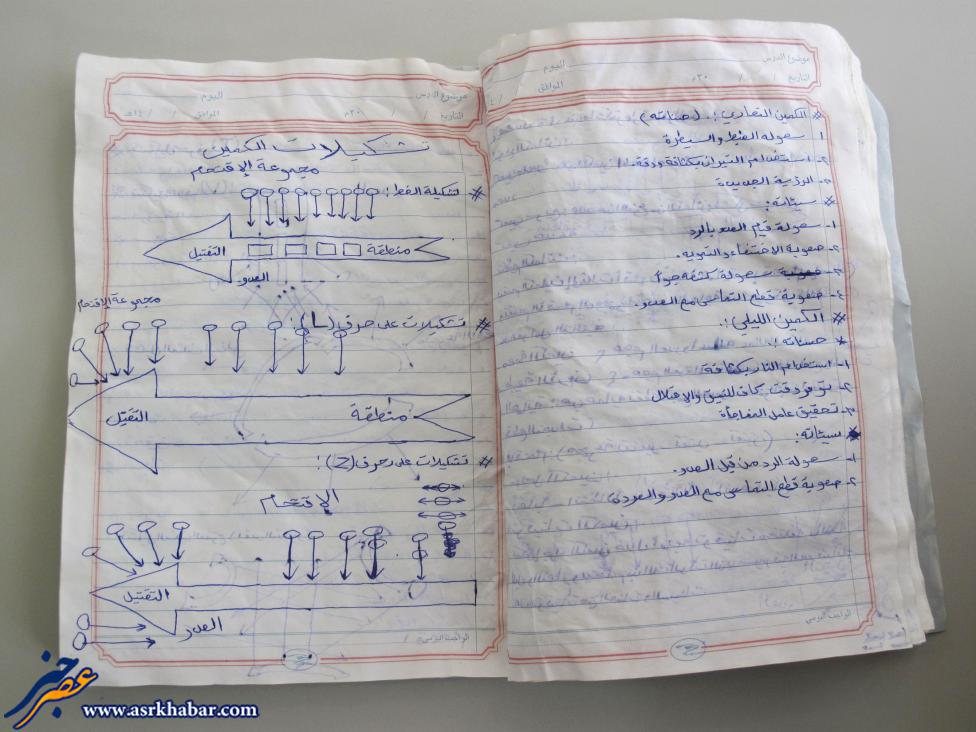 موضوع الدرس
اليوم
التاريخ / / ١٤٣٠هـ
الموافق / /
* الكمين النهاري: (حسناته)
١- سهولة الضبط والسيطرة
٢- استخدام النيران بكثافة ودقة.
٣- الرؤية الجيدة
* سيئاته:
١- سهولة قيام العدو بالرد
٢- صعوبة الاختفاء والتمويه.
٣- سهولة كشفه جواً
٤- صعوبة قطع التماس مع العدو.
* الكمين الليلي:
* حسناته:
١- استخدام النار بكثافة
٢- توفر وقت كاف
٣- تحقيق عامل المفاجأة
* سيئاته:
١- سهولة الرد من قبل العدو.
٢- صعوبة قطع التماس مع العدو والعودة
الواجب المدرسي
موضوع الدرس
اليوم
التاريخ / /
الموافق / /
تشكيلات الكمين
مجموعة الإقتحام
* تشكيلة الخط:
منطقة التقتيل
العدو
مجموعة الإقتحام
* تشكيلات على حرف (L):
منطقة التقتيل
* تشكيلات على حرف (Z):
الإقتحام
التقتيل
العدو
الواجب المدرسي
عصر خبر
www.asrkhabar.com